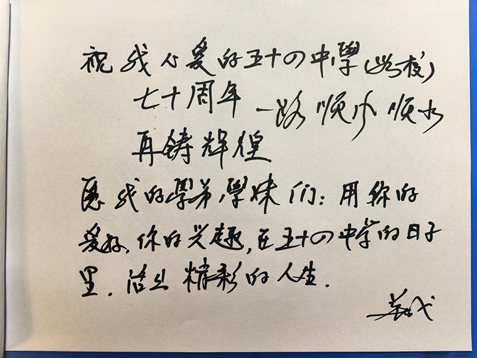 祝我心爱的五十四中學(母校)
七十周年 一路顺风顺水
再铸辉煌
愿我的學弟學妹们:用你的
爱好,你的兴趣,在五十四中学的日子
里.活出精彩的人生.